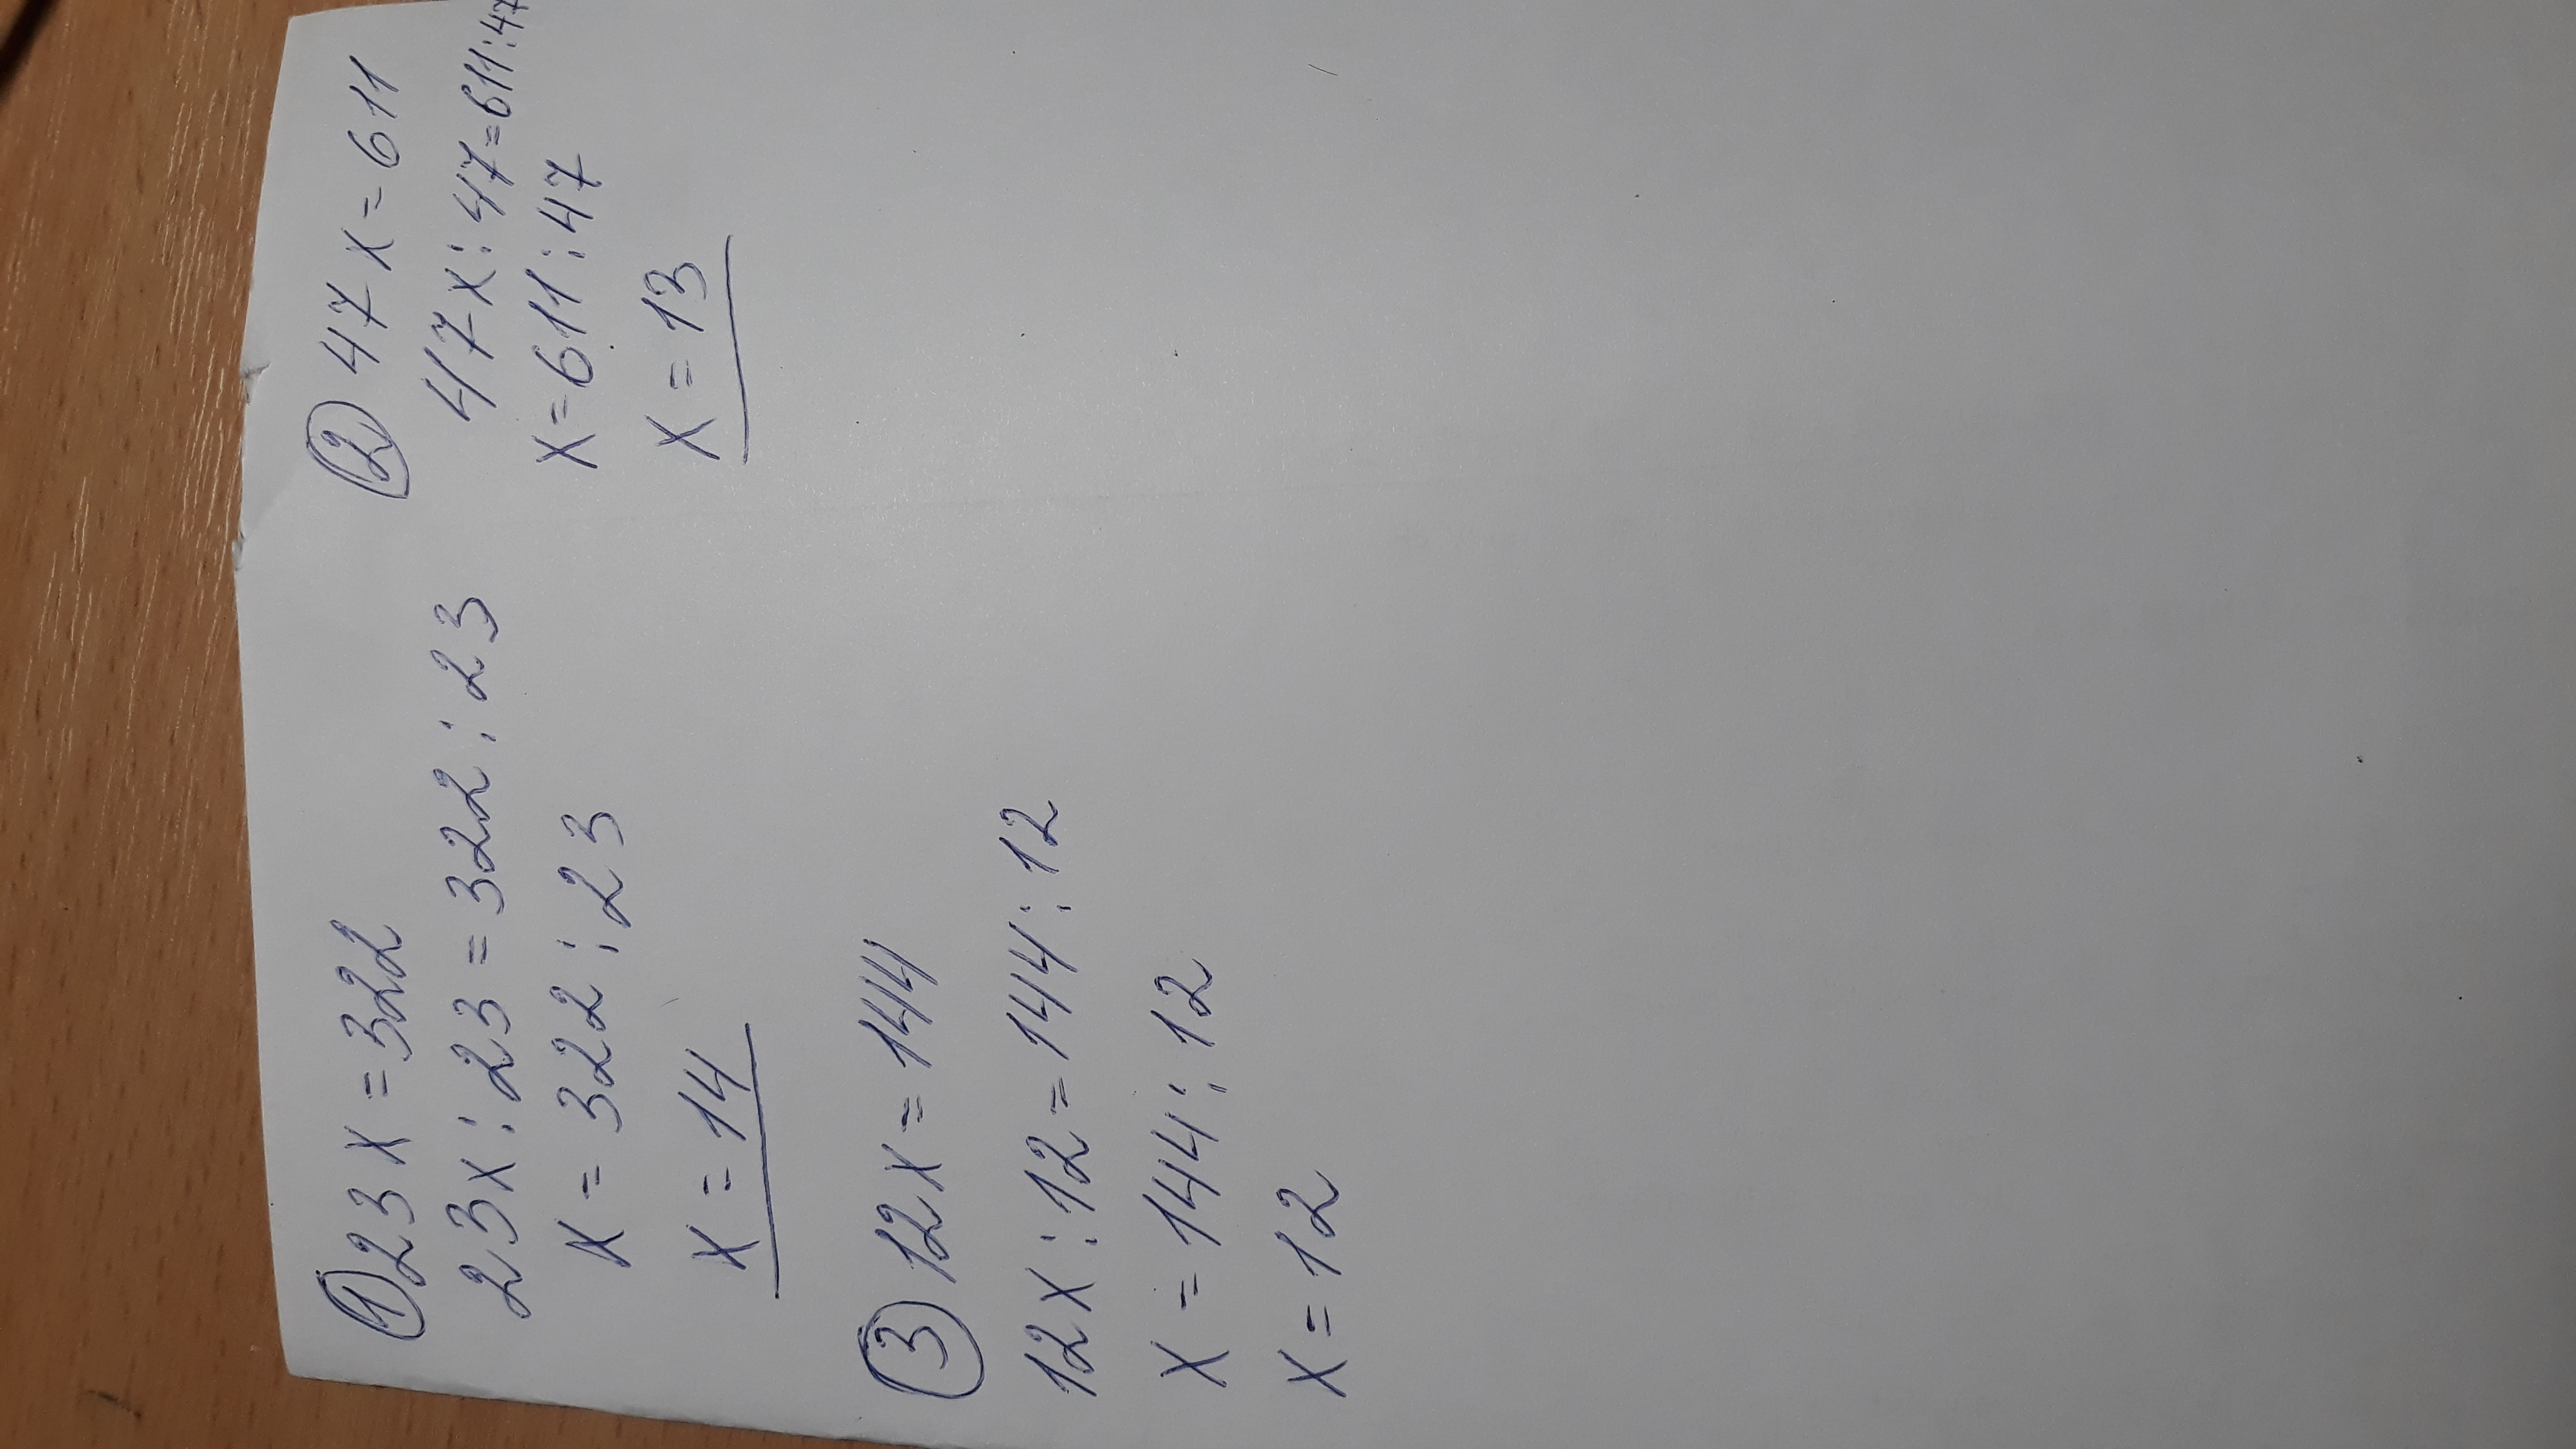 ① 23x = 322
23x : 23 = 322 : 23
x = 322 : 23
x = 14
② 47x = 611
47x : 47 = 611 : 47
x = 611 : 47
x = 13
③ 12x = 144
12x : 12 = 144 : 12
x = 144 : 12
x = 12